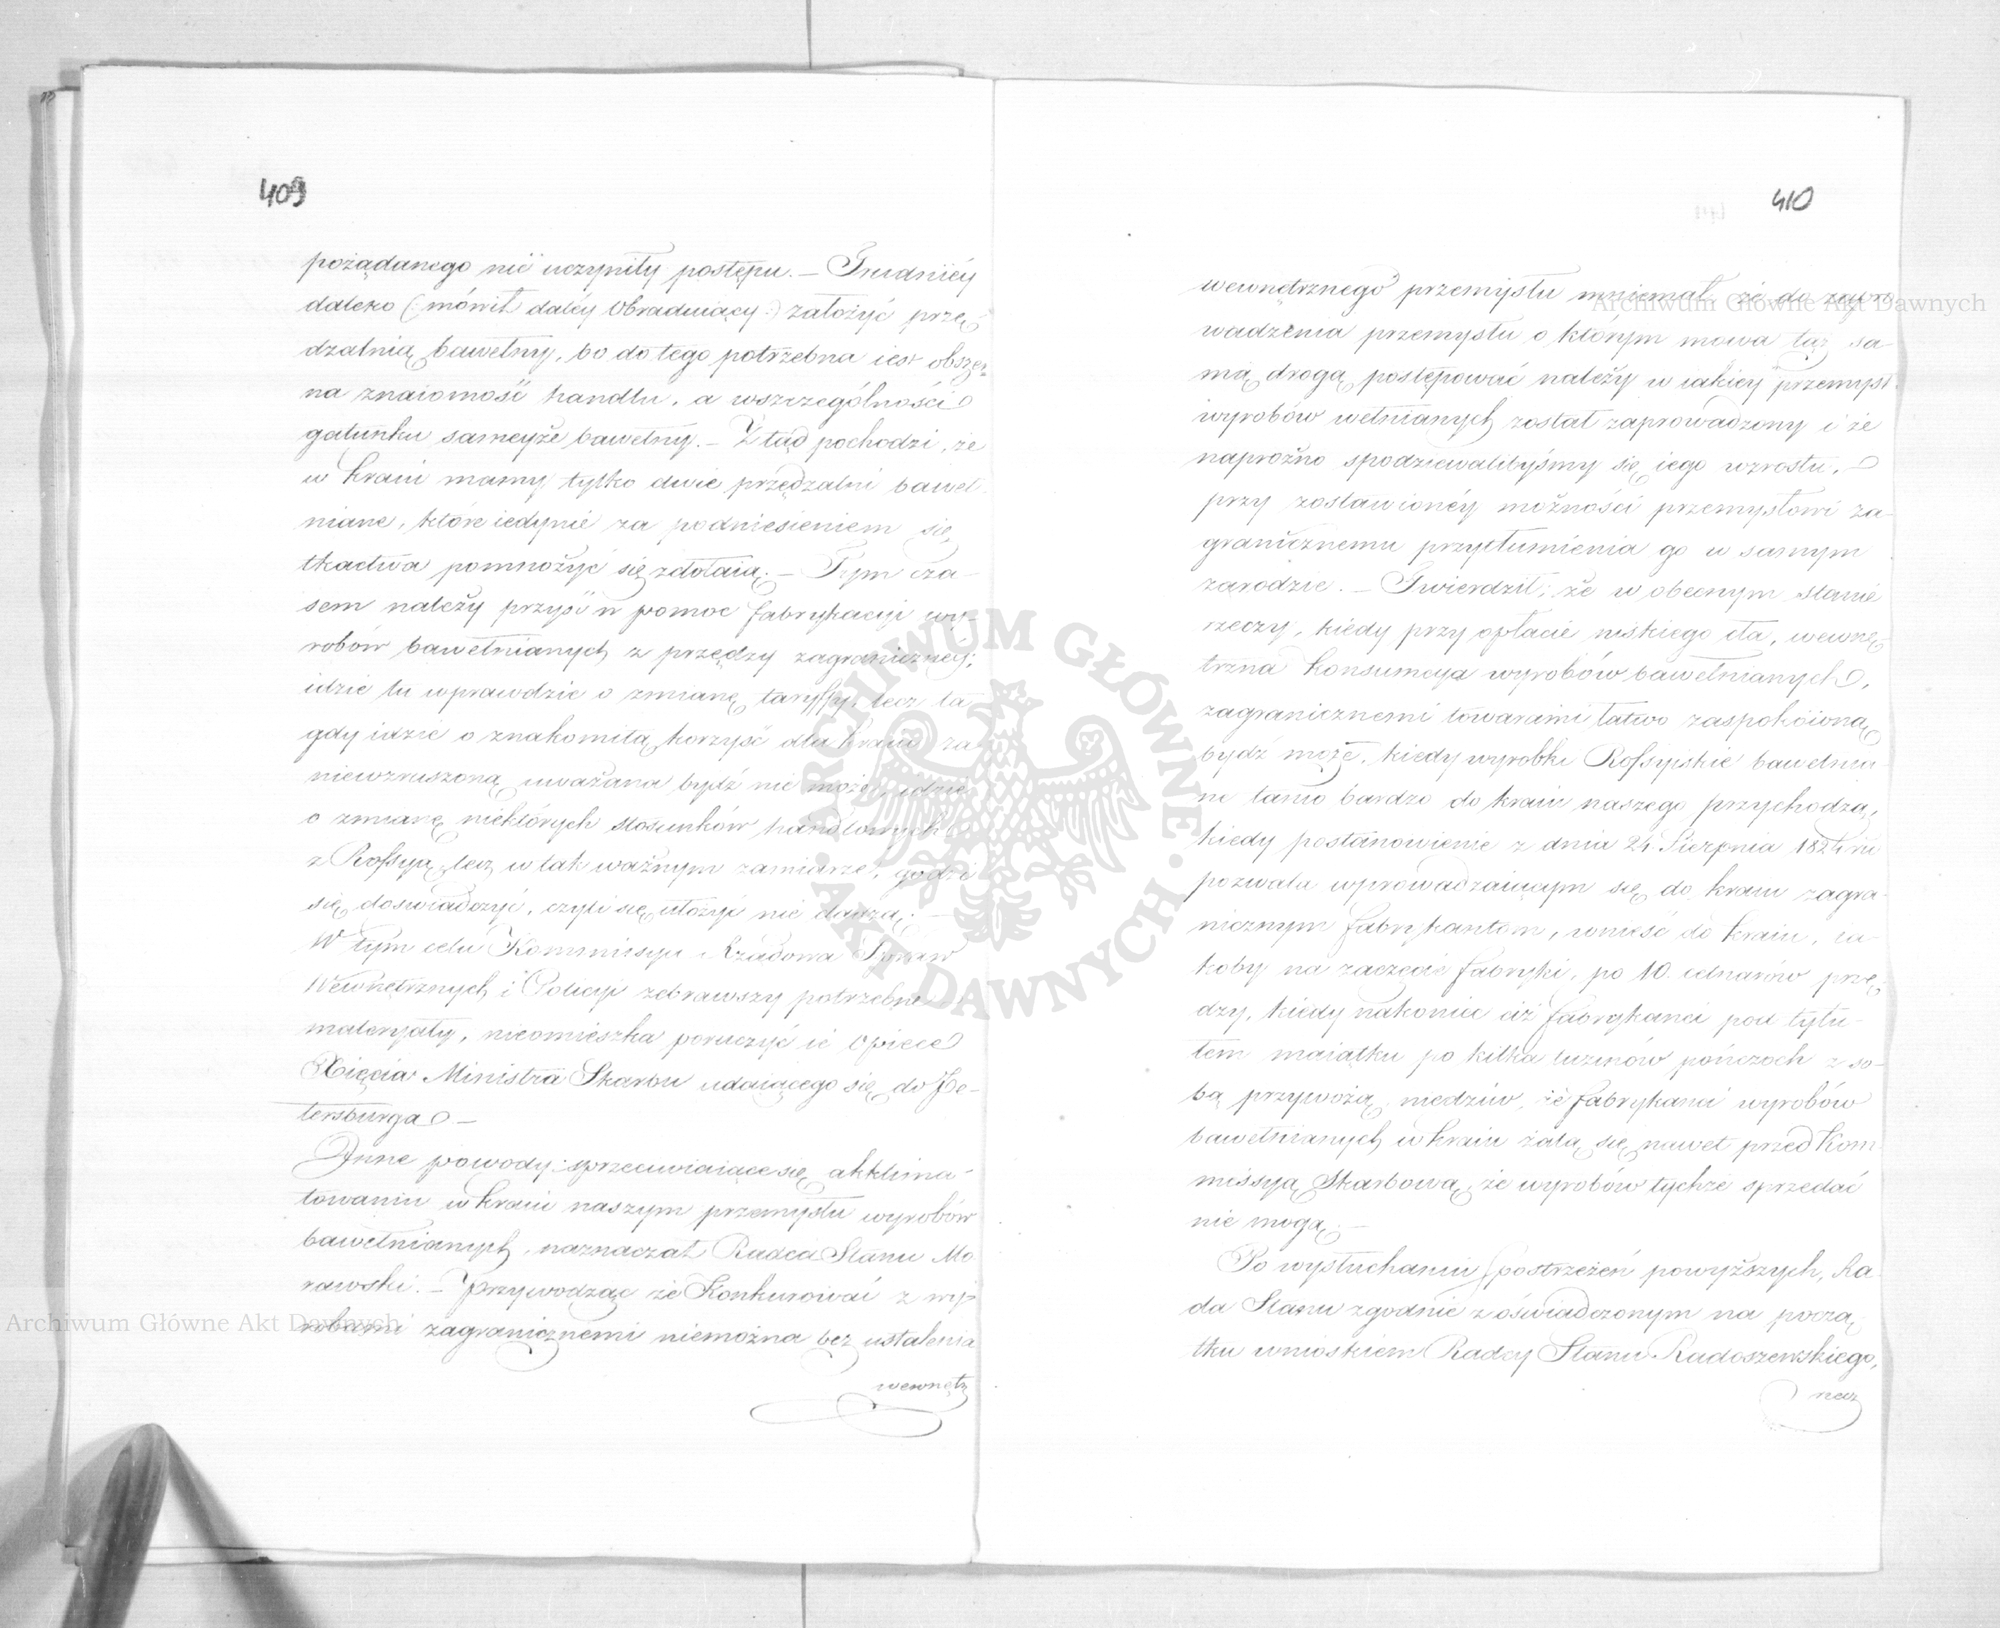 409
pożądanego nié uczyniły postępu. — Trudniéy
daleko (: mówił daléy Obraduiący :) założyć przę
dzalnią bawełny, bo do tego potrzebna iest obszer
na znaiomość handlu, a wszczególności
gatunku sameyże bawełny. — Ztąd pochodzi, że
w kraiu mamy tylko dwie przędzalni baweł
niane, które iedynié za podniesieniem się
tkactwa pomnożyć się zdołaią. — Tym cza-
sem należy przyść w pomoc fabrykacyi wy-
robów bawełnianych z przędzy zagraniczney;
idzie tu wprawdzie o zmianę taryffy, lecz ta
gdy idzie o znakomitą korzyść dla kraiu za
niewzruszoną uważana bydź nie może, idzie
o zmianę niektórych stosunków handlowych
z Rossyą, lecz w tak ważnym zamiarze, godzi
się doświadczyć, czyli się ułożyć nie dadzą. —
W tym celu Kommissya Rządowa Spraw
Wewnętrznych i Policyi zebrawszy potrzebne
materyały, nieomieszka poruczyć ie opiece
Xięcia Ministra Skarbu udaiącego się do Pe-
tersburga. —
Inne powody sprzeciwiaiące się akklima-
towaniu w kraiu naszym przemysłu wyrobów
bawełnianych, naznaczał Radca Stanu Mo
rawski. — Przywodząc że Konkurować z wy
robami zagranicznemi niemożna bez ustalenia
wewnętz
410
wewnętrznego przemysłu mniemał, że do zapro
wadzenia przemysłu o którym mowa tąż sa-
mą drogą postępować należy w iakiey przemysł
wyrobów wełnianych został zaprowadzony i że
naprożno spodziewalibyśmy się iego wzrostu,
przy zostawionéy możności przemysłowi za-
granicznemu przytłumienia go w samym
zarodzie. — Twierdził; że w obecnym stanie
rzeczy, kiedy przy opłacie niskiego cła, wewnę
trzna konsumcya wyrobów bawełnianych,
zagranicznemi towarami łatwo zaspokoioną
bydź może, kiedy wyrobki Rossyiskie bawełnia
ne tanio bardzo do kraiu naszego przychodzą,
kiedy postanowienie z dnia 24 Sierpnia 1824 r.
pozwala wprowadzaiącym się do kraiu zagra-
nicznym fabrykantom, wnieść do kraiu, ia-
koby na zaczęcie fabryki, po 10 cetnarów przę
dzy, kiedy nakoniec ciż fabrykanci pod tytu-
łem maiątku po kilka tuzinów pończoch z so-
bą przywożą, niedziw, że fabrykanci wyrobów
bawełnianych w kraiu żalą się nawet przed Kom
missyą Skarbową, że wyrobów tychże sprzedać
nie mogą. —
Po wysłuchaniu postrzeżeń powyższych, Ra-
da Stanu zgodnie z oświadczonym na począ
tku wnioskiem Radcy Stanu Radoszewskiego,
Archiwum Główne Akt Dawnych
Archiwum Główne Akt Dawnych
ARCHIWUM GŁÓWNE
AKT DAWNYCH